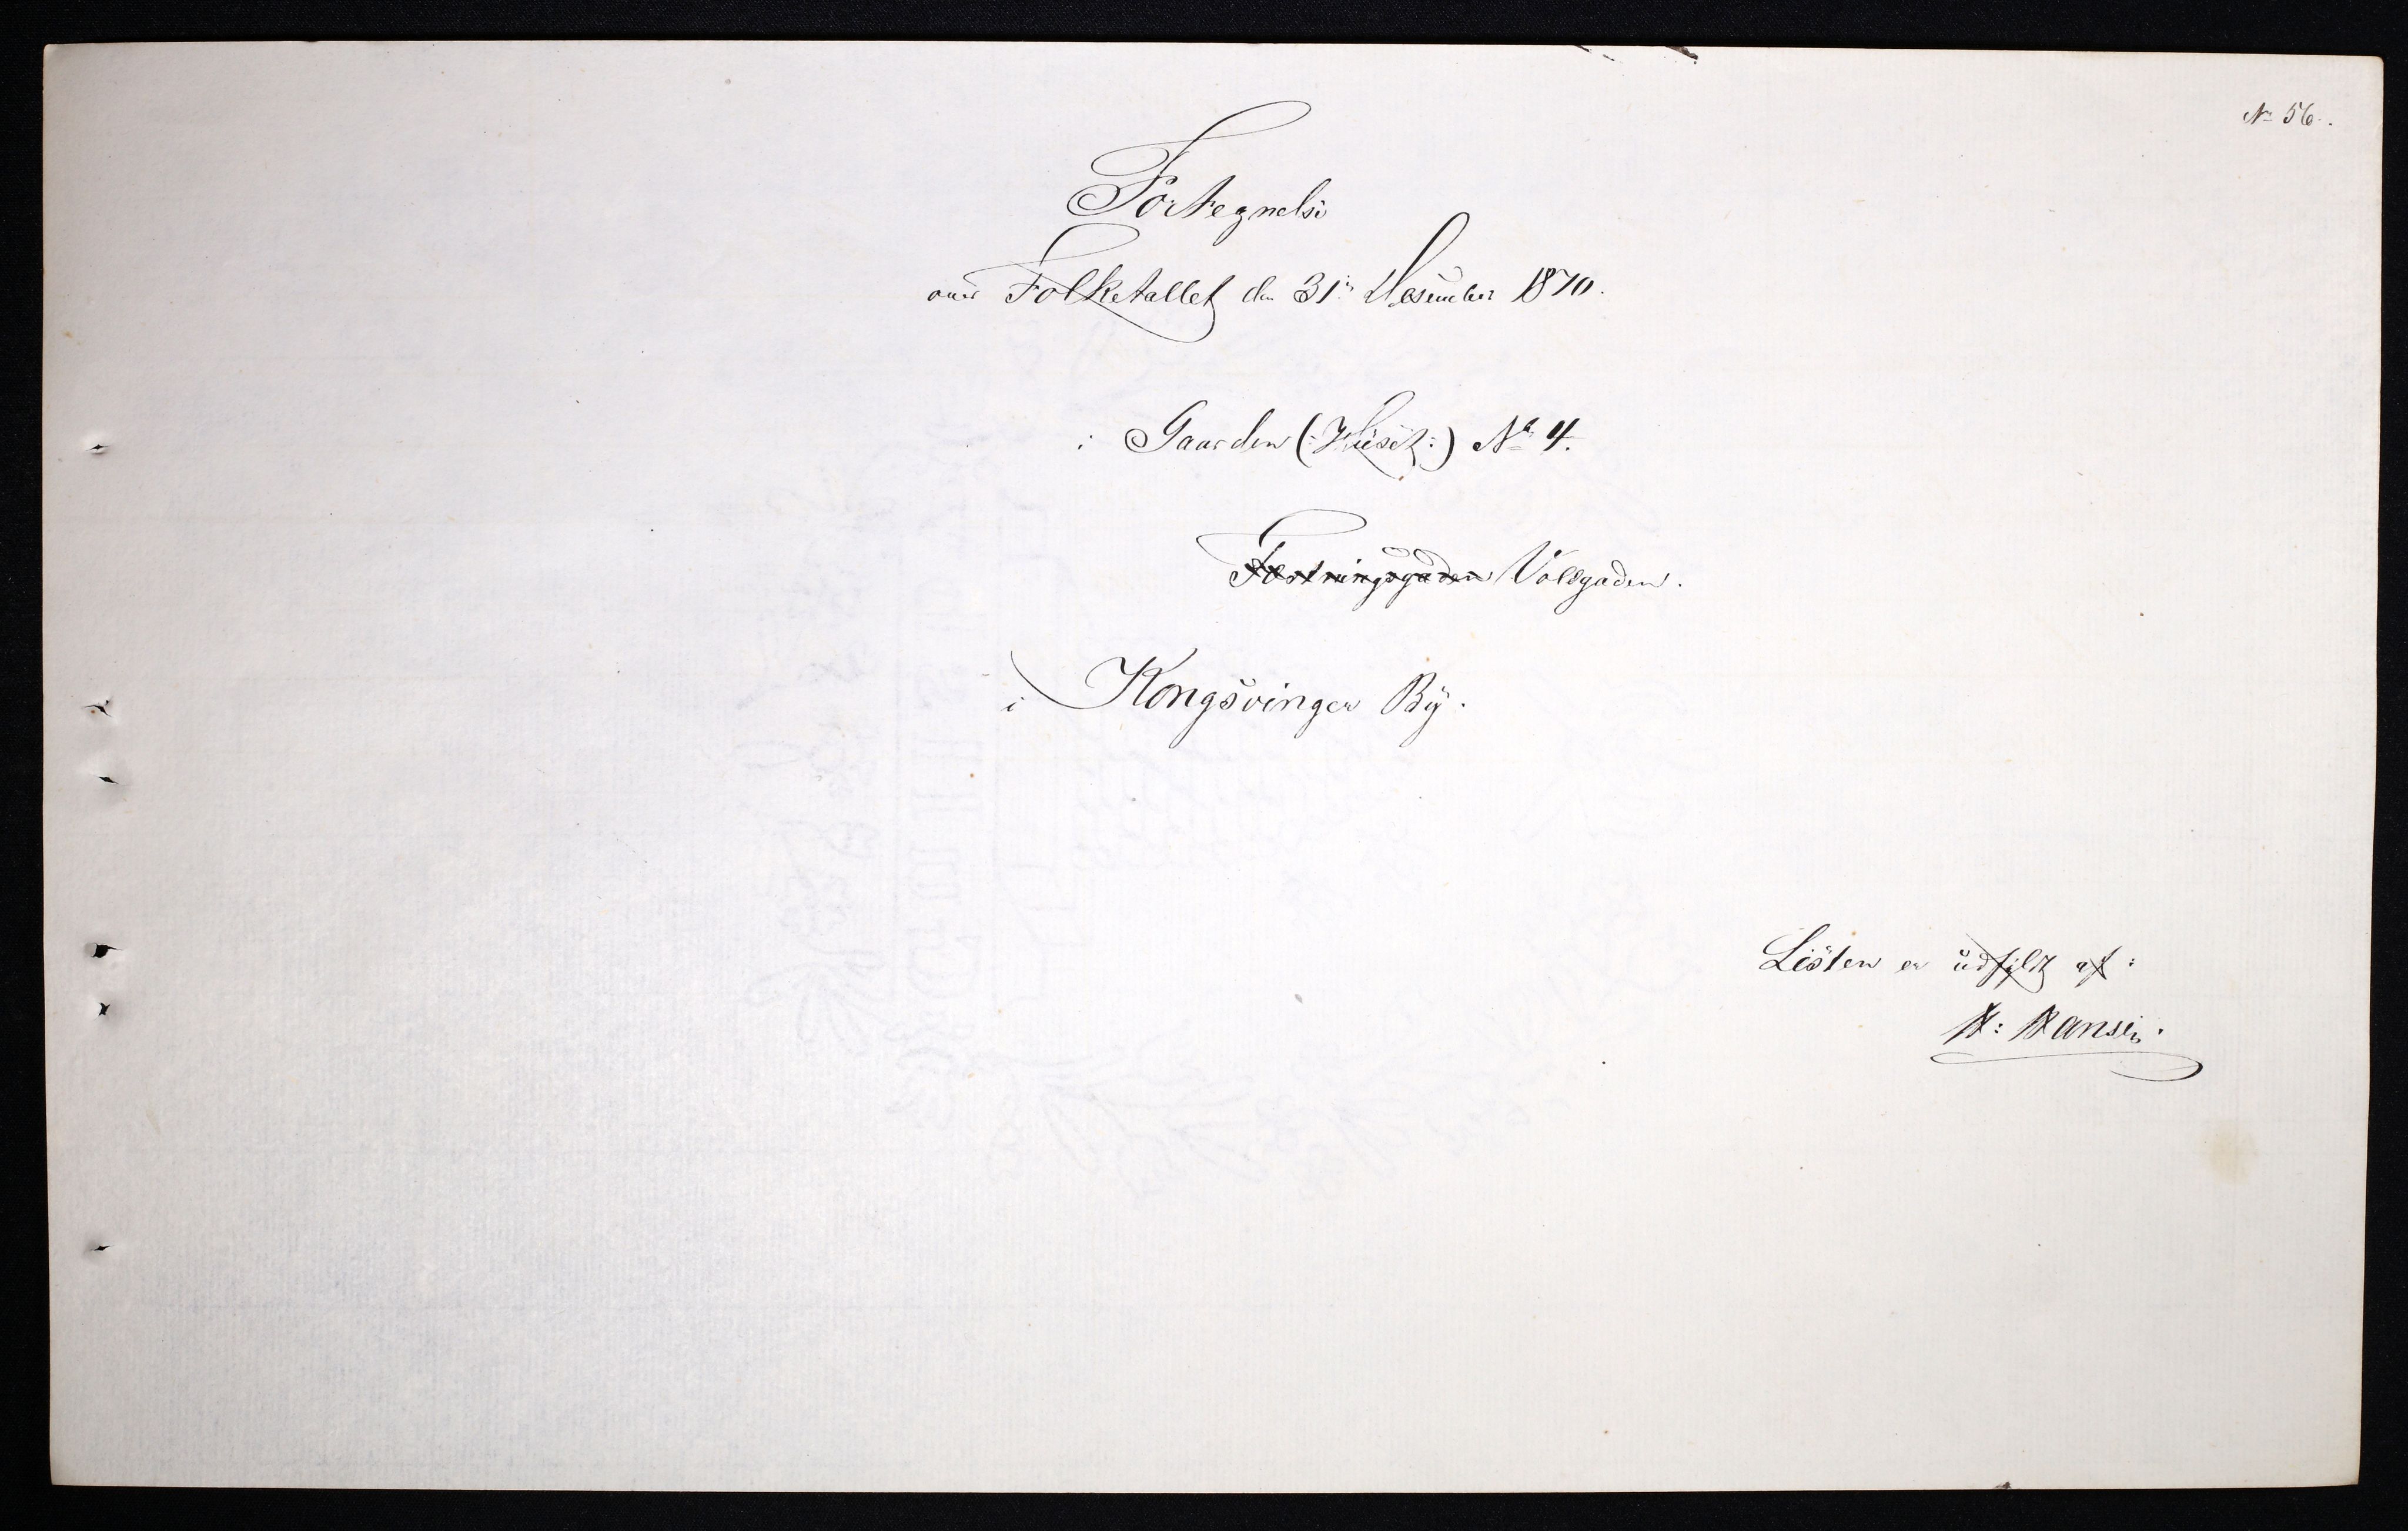 No 56.
Fortegnelse
over Folketallet den 31te Desember 1870.
i Gaarden (:Huset:) No 4.
Fæstningsgaden Voldgaden.
i Kongsvinger By.
Listen er udfylt af:
H: Hansen.